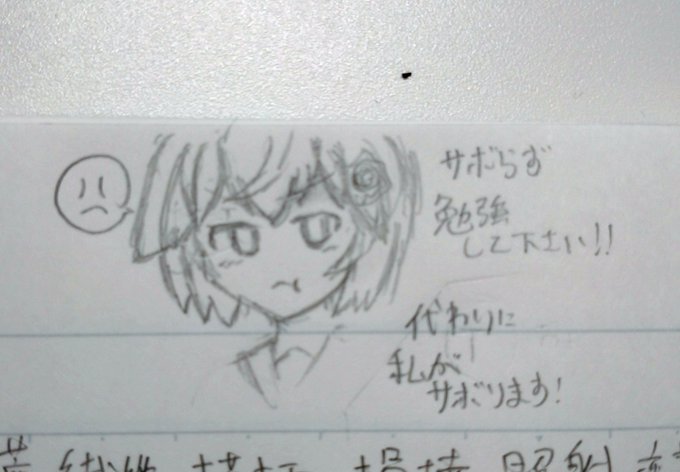 サボらず
勉強
して下さい!!
代わりに
私が
サボります!